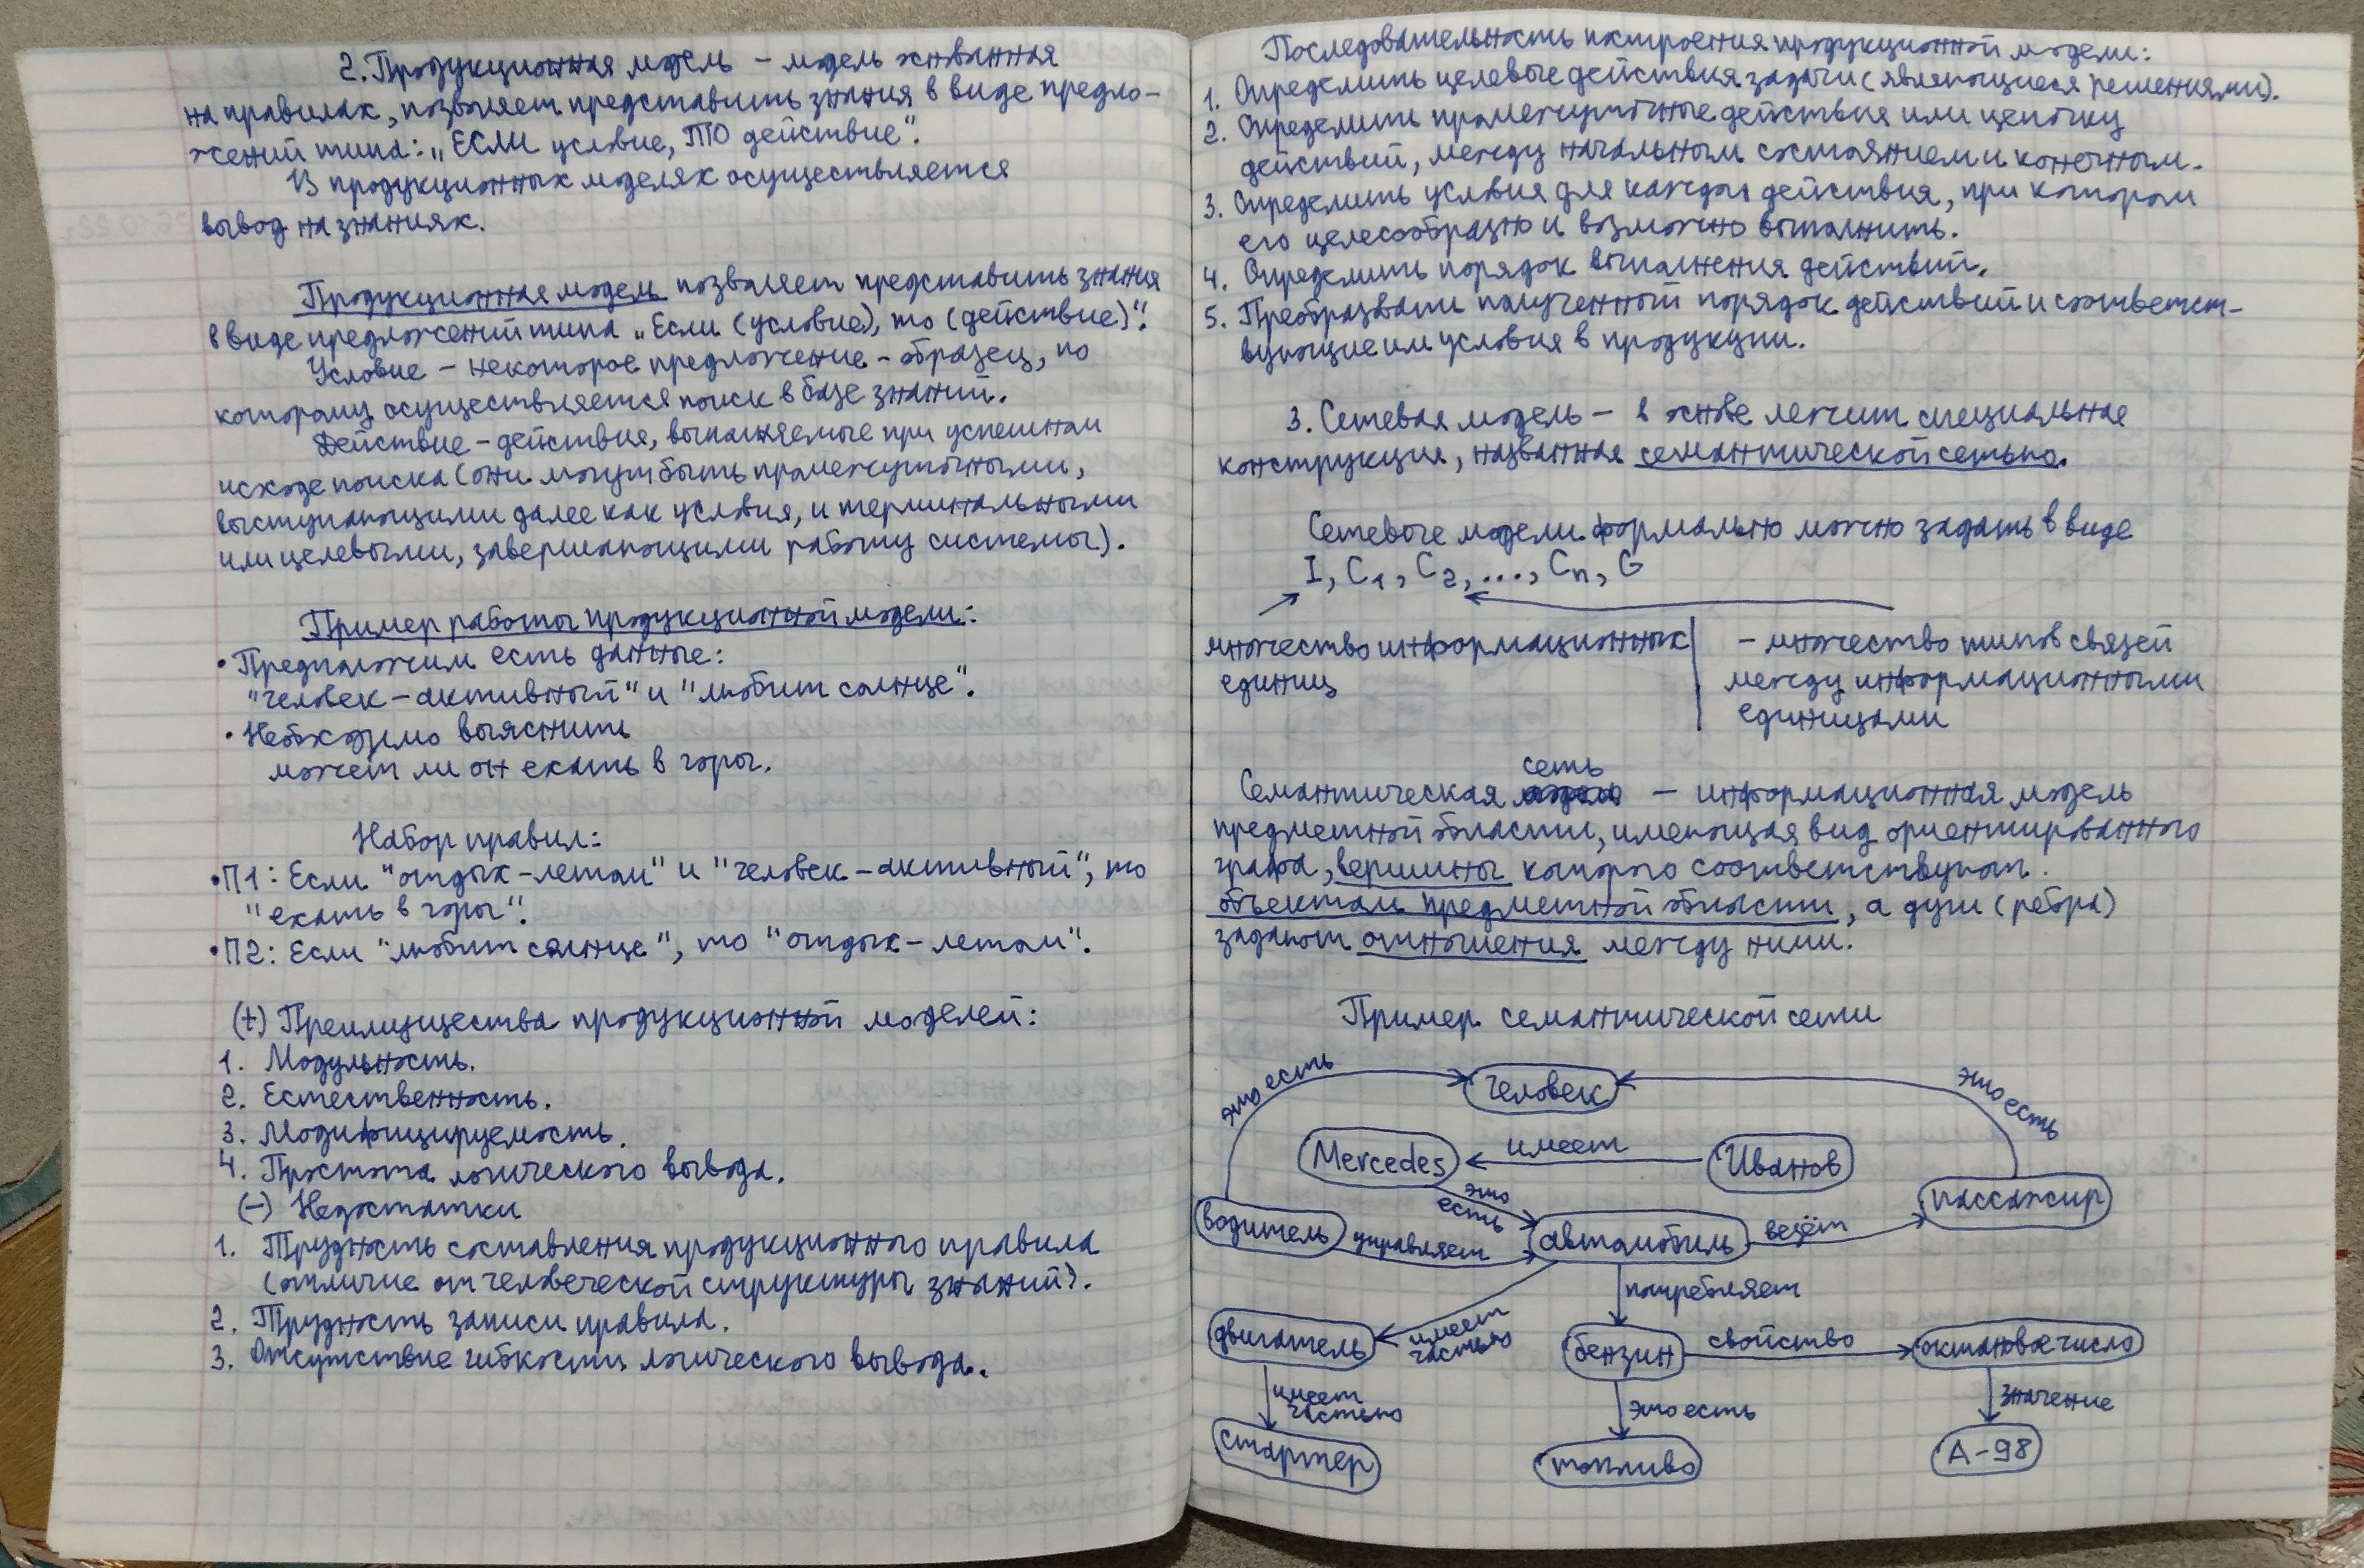 2. Продукционная модель – модель основанная
на правилах, позволяет представить знания в виде предло-
жений типа: „ЕСЛИ условие, ТО действие".
В продукционных моделях осуществляется
вывод на знаниях.
Продукционная модель позволяет представить знания
в виде предложений типа „Если (условие), то (действие)".
Условие – некоторое предложение – образец, по
которому осуществляется поиск в базе знаний.
Действие – действия, выполняемые при успешном
исходе поиска (они могут быть промежуточными,
выступающими далее как условия, и терминальными
или целевыми, завершающими работу системы).
Пример работы продукционной модели:
• Предположим есть данные:
"человек – активный" и "любит солнце".
• Необходимо выяснить
может ли он ехать в горы.
Набор правил:
• П1: Если "отдых – летом" и "человек – активный", то
"ехать в горы".
• П2: Если "любит солнце", то "отдых – летом".
(+) Преимущества продукционной моделей:
1. Модульность.
2. Естественность.
3. Модифицируемость.
4. Простота логического вывода.
(–) Недостатки
1. Трудность составления продукционного правила
(отличие от человеческой структуры знаний).
2. Трудность записи правила.
3. Отсутствие гибкости логического вывода.
Последовательность построения продукционной модели:
1. Определить целевые действия задачи (являющиеся решениями).
2. Определить промежуточные действия или цепочку
действий, между начальным состоянием и конечным.
3. Определить условия для каждого действия, при котором
его целесообразно и возможно выполнить.
4. Определить порядок выполнения действий.
5. Преобразовать полученный порядок действий и соответст-
вующие им условия в продукции.
3. Сетевая модель – в основе лежит специальная
конструкция, названная семантической сетью.
Сетевые модели формально можно задать в виде
I, C1, C2, ..., Cn, G
множество информационных
единиц
– множество типов связей
между информационными
единицами
сеть
Семантическая модель – информационная модель
предметной области, имеющая вид ориентированного
графа, вершины которого соответствуют
объектам предметной области, а дуги (ребра)
задают отношения между ними.
Пример семантической сети
это есть
человек
это есть
Mercedes
имеет
Иванов
это
есть
пассажир
водитель
управляет
автомобиль
везёт
потребляет
двигатель
имеет
частью
бензин
свойство
октановое число
имеет
частью
это есть
значение
стартер
топливо
А-98